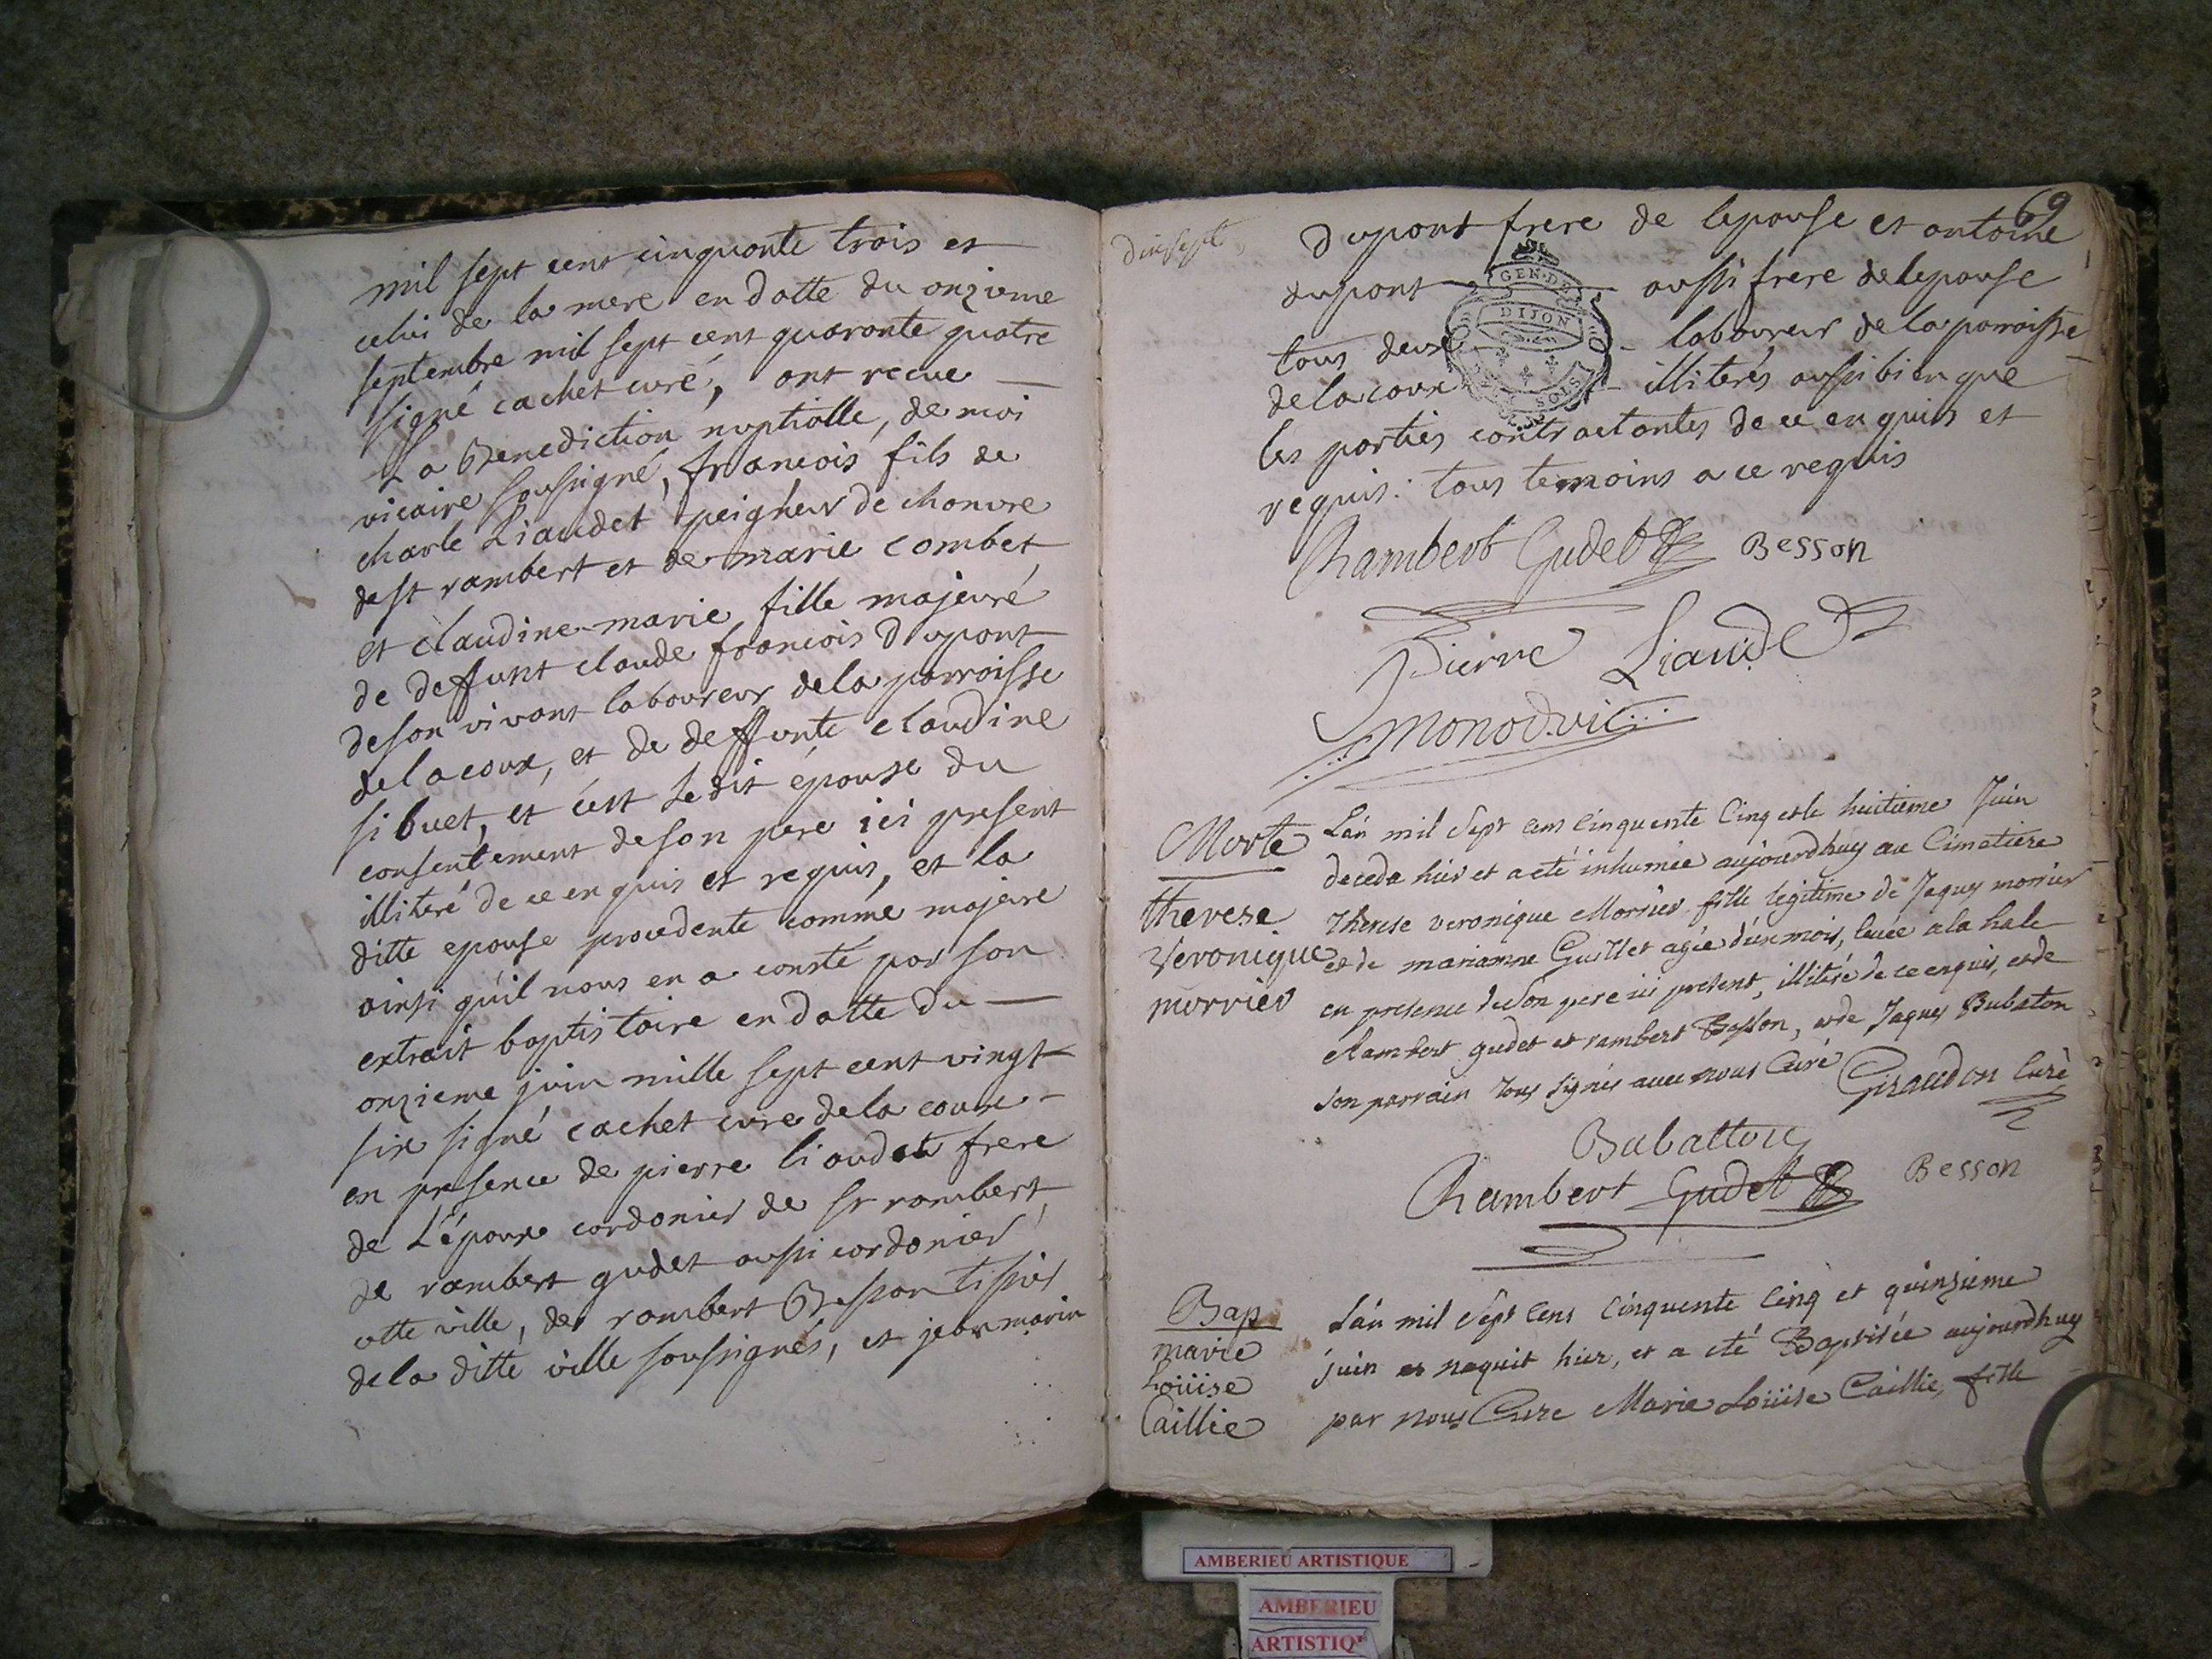 mil sept cent cinquante trois et
celui de la mere en datte du onzieme
septembre mil sept cent quarante quatre
signé cachet curé, ont recue
La Benediction nuptialle, de moi
vicaire soussigné, francois fils de
charle Liaudet peigneur de chanvre
de st rambert et de marie combet
et claudine marie fille majeure
de deffunt claude francois Dupont
de son vivant laboureur de la parroisse
de la coux, et de deffunte claudine
sibuet, et c'est le dit épouse du
consentement de son pere ici present
illiteré de ce enquis et requis, et la
ditte epouse procedente comme majeure
ainsi qu'il nous en a consté par son
extrait baptistaire en datte du
onzieme juin mille sept cent vingt
six signé cachet cure de la coux
en presence de pierre liaudet frere
de L'époux cordonier de st rambert
de rambert gudet aussi cordonier
cette ville, de rambert Besson tissier
de la ditte ville soussignés, et jean marin
69
dixsept
Dupont frere de lepouse et antoine
dupont aussi frere de lepouse
tous deux laboureur de la parroisse
de la coux illiterés aussi bien que
les parties contractantes de ce enquis et
requis: tous temoins a ce requis
GEN. DE
DIJON
SOLS
Rambert Gudet Besson
Pierre Liaudet
Monod vic
Morte
therese
Veronique
morrier
L'an mil sept cens cinquente cinq et le huitieme Juin
deceda hier et a eté inhumée aujourdhuy au Cimetiere
therese veronique Morrier fille legitime de Jaques morrier
et de mariamne Guillet agée d'un mois, levée a la hale
en presence de son pere ici present, illiteré de ce enquis, et de
Rambert gudet et rambert Besson, et de Jaques Bubaton
son parrain tous signés avec nous Curé Giraudon Curé
Bubatton
Rambert Gudet Besson
Bap
marie
Loüise
Caillie
L'an mil sept cens cinquente cinq et quinzieme
juin naquit hier, et a eté Baptisée aujourdhuy
par nous Cure Marie Loüise Caillie, fille
AMBERIEU ARTISTIQUE
AMBERIEU
ARTISTIQ